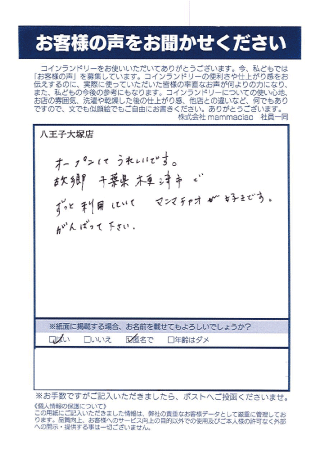 お客様の声をお聞かせください
コインランドリーをお使いいただいてありがとうございます。今、私どもでは
「お客様の声」を募集しています。コインランドリーの便利さや仕上がり感をお
伝えするのに、実際に使っていただいた皆様の率直なお声が何よりの力になり、
また、私どもの今後の参考にもなります。コインランドリーについての使い心地、
お店の雰囲気、洗濯や乾燥した後の仕上がり感、他店との違いなど、何でもあり
ですので、文でも似顔絵でもご自由にお書きください。ありがとうございます。
株式会社 mammaciao 社員一同
八王子大塚店
オープンしてうれしいです。
故郷 千葉県木更津市で
ずっと利用していて マンマチャオが好きです。
がんばって下さい。
※紙面に掲載する場合、お名前を載せてもよろしいでしょうか？
☑はい □いいえ ☑匿名で □年齢はダメ
※お手数ですがご記入いただきましたら、ポストへご投函くださいませ。
《個人情報の保護について》
この用紙にご記入いただきました情報は、弊社の貴重なお客様データとして厳重に管理してお
ります。品質向上、お客様へのサービス向上の目的以外での使用及びご本人様の許可なく外部
への開示・提供する事は一切ございません。